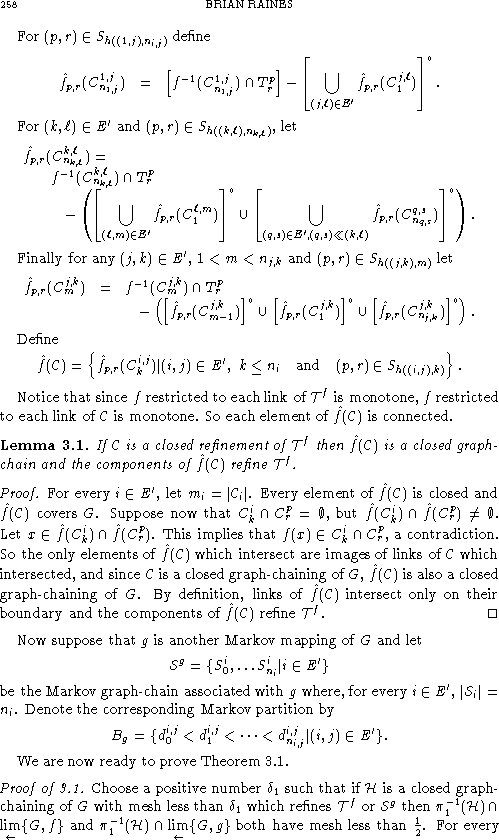 258 BRIAN RAINES
For $(p, r) \in S_{h((1,j),n_{i,j})}$ define
$\hat{f}_{p,r}(C^{1,j}_{n_{1,j}}) = \left[f^{-1}(C^{1,j}_{n_{1,j}}) \cap T^p_r\right] - \left[\bigcup_{(j,\ell)\in E'} \hat{f}_{p,r}(C^{j,\ell}_1)\right]^\circ.$
For $(k, \ell) \in E'$ and $(p, r) \in S_{h((k,\ell),n_{k,\ell})}$, let
$\hat{f}_{p,r}(C^{k,\ell}_{n_{k,\ell}}) =$
$f^{-1}(C^{k,\ell}_{n_{k,\ell}}) \cap T^p_r$
$- \left(\left[\bigcup_{(\ell,m)\in E'} \hat{f}_{p,r}(C^{\ell,m}_1)\right]^\circ \cup \left[\bigcup_{(q,s)\in E',(q,s)\ll(k,\ell)} \hat{f}_{p,r}(C^{q,s}_{n_{q,s}})\right]^\circ\right).$
Finally for any $(j, k) \in E'$, $1 < m < n_{j,k}$ and $(p, r) \in S_{h((j,k),m)}$ let
$\hat{f}_{p,r}(C^{j,k}_m) = f^{-1}(C^{j,k}_m) \cap T^p_r$
$- \left(\left[\hat{f}_{p,r}(C^{j,k}_{m-1})\right]^\circ \cup \left[\hat{f}_{p,r}(C^{j,k}_1)\right]^\circ \cup \left[\hat{f}_{p,r}(C^{j,k}_{n_{j,k}})\right]^\circ\right).$
Define
$\hat{f}(\mathcal{C}) = \left\{\hat{f}_{p,r}(C^{i,j}_k) | (i, j) \in E',\ k \leq n_i \quad \text{and} \quad (p, r) \in S_{h((i,j),k)}\right\}.$
Notice that since $f$ restricted to each link of $\mathcal{T}^f$ is monotone, $f$ restricted
to each link of $\mathcal{C}$ is monotone. So each element of $\hat{f}(\mathcal{C})$ is connected.
**Lemma 3.1.** If $\mathcal{C}$ is a closed refinement of $\mathcal{T}^f$ then $\hat{f}(\mathcal{C})$ is a closed graph-
chain and the components of $\hat{f}(\mathcal{C})$ refine $\mathcal{T}^f$.
Proof. For every $i \in E'$, let $m_i = |\mathcal{C}_i|$. Every element of $\hat{f}(\mathcal{C})$ is closed and
$\hat{f}(\mathcal{C})$ covers $G$. Suppose now that $C^i_k \cap C^p_r = \emptyset$, but $\hat{f}(C^i_k) \cap \hat{f}(C^p_r) \neq \emptyset$.
Let $x \in \hat{f}(C^i_k) \cap \hat{f}(C^p_r)$. This implies that $f(x) \in C^i_k \cap C^p_r$, a contradiction.
So the only elements of $\hat{f}(\mathcal{C})$ which intersect are images of links of $\mathcal{C}$ which
intersected, and since $\mathcal{C}$ is a closed graph-chaining of $G$, $\hat{f}(\mathcal{C})$ is also a closed
graph-chaining of $G$. By definition, links of $\hat{f}(\mathcal{C})$ intersect only on their
boundary and the components of $\hat{f}(\mathcal{C})$ refine $\mathcal{T}^f$. □
Now suppose that $g$ is another Markov mapping of $G$ and let
$\mathcal{S}^g = \{S^i_0, \ldots S^i_{n_i} | i \in E'\}$
be the Markov graph-chain associated with $g$ where, for every $i \in E'$, $|\mathcal{S}_i| =$
$n_i$. Denote the corresponding Markov partition by
$B_g = \{d^{i,j}_0 < d^{i,j}_1 < \cdots < d^{i,j}_{n_{i,j}} | (i, j) \in E'\}.$
We are now ready to prove Theorem 3.1.
Proof of 3.1. Choose a positive number $\delta_1$ such that if $\mathcal{H}$ is a closed graph-
chaining of $G$ with mesh less than $\delta_1$ which refines $\mathcal{T}^f$ or $\mathcal{S}^g$ then $\pi_1^{-1}(\mathcal{H}) \cap$
$\varprojlim\{G, f\}$ and $\pi_1^{-1}(\mathcal{H}) \cap \varprojlim\{G, g\}$ both have mesh less than $\frac{1}{2}$. For every